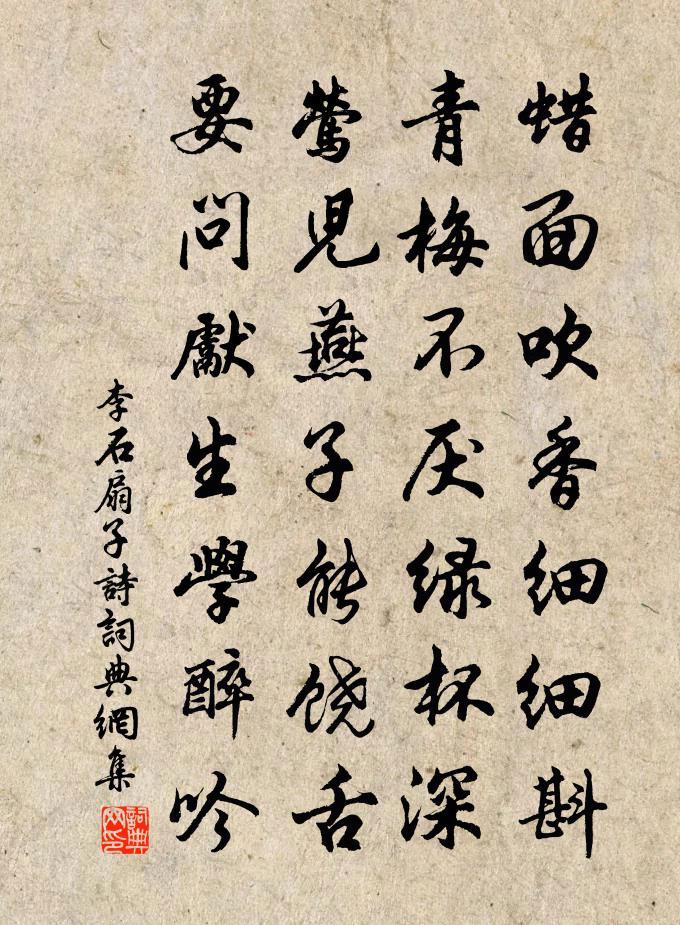 蜡面吹香细细斟
青梅不厌绿杯深
莺児燕子能饶舌
要问獻生學醉吟
李石扇子詩詞典網集
詞典网印